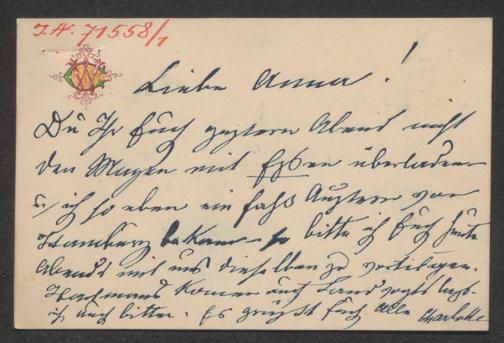 I.N. 71558/1
Liebe Anna!
Da Ihr Euch gestern Abend nicht
den Magen mit Essen überladen
u. ich so eben ein Faß Austern von
Hamburg bekam so bitte ich Euch heute
Abend mit uns dieselben zu vertilgen.
Hartmanns komen auch
ich auch bitten. Es grüsst Euch alle Charlotte